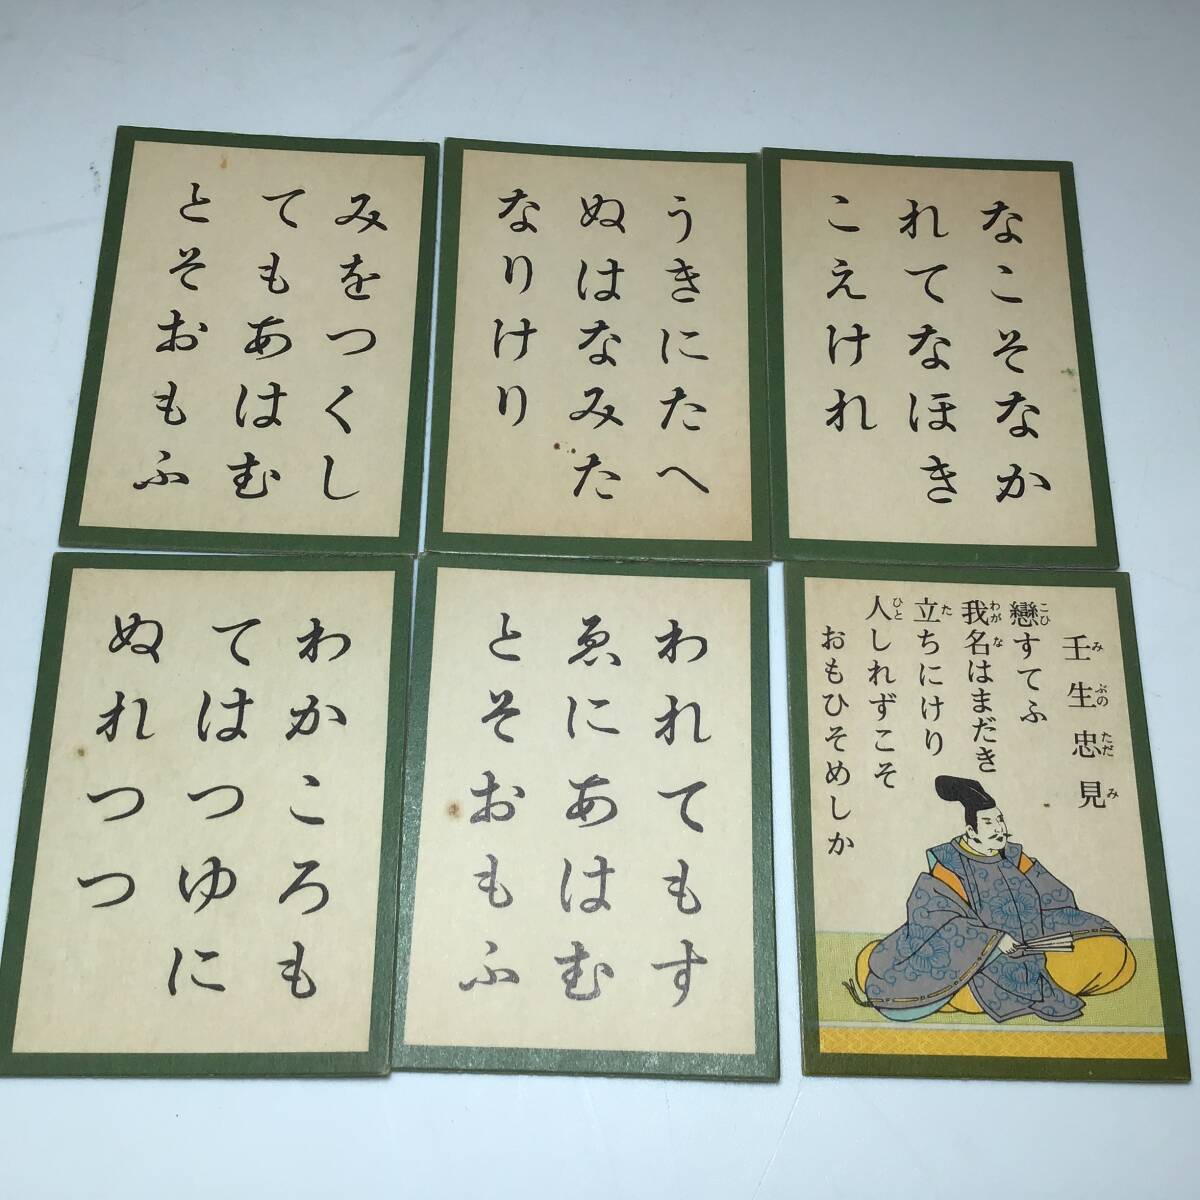 みをつくし
てもあはむ
とそおもふ
うきにたへ
ぬはなみた
なりけり
なこそなか
れてなほき
こえけれ
わかころも
てはつゆに
ぬれつつ
われてもす
ゑにあはむ
とそおもふ
壬生忠見
みぶのただみ
戀すてふ
こひ
我名はまだき
わがな
立ちにけり
た
人しれずこそ
ひと
おもひそめしか